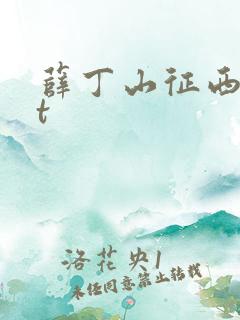 薛丁山征西
t
洛花央1
未经同意禁止转载